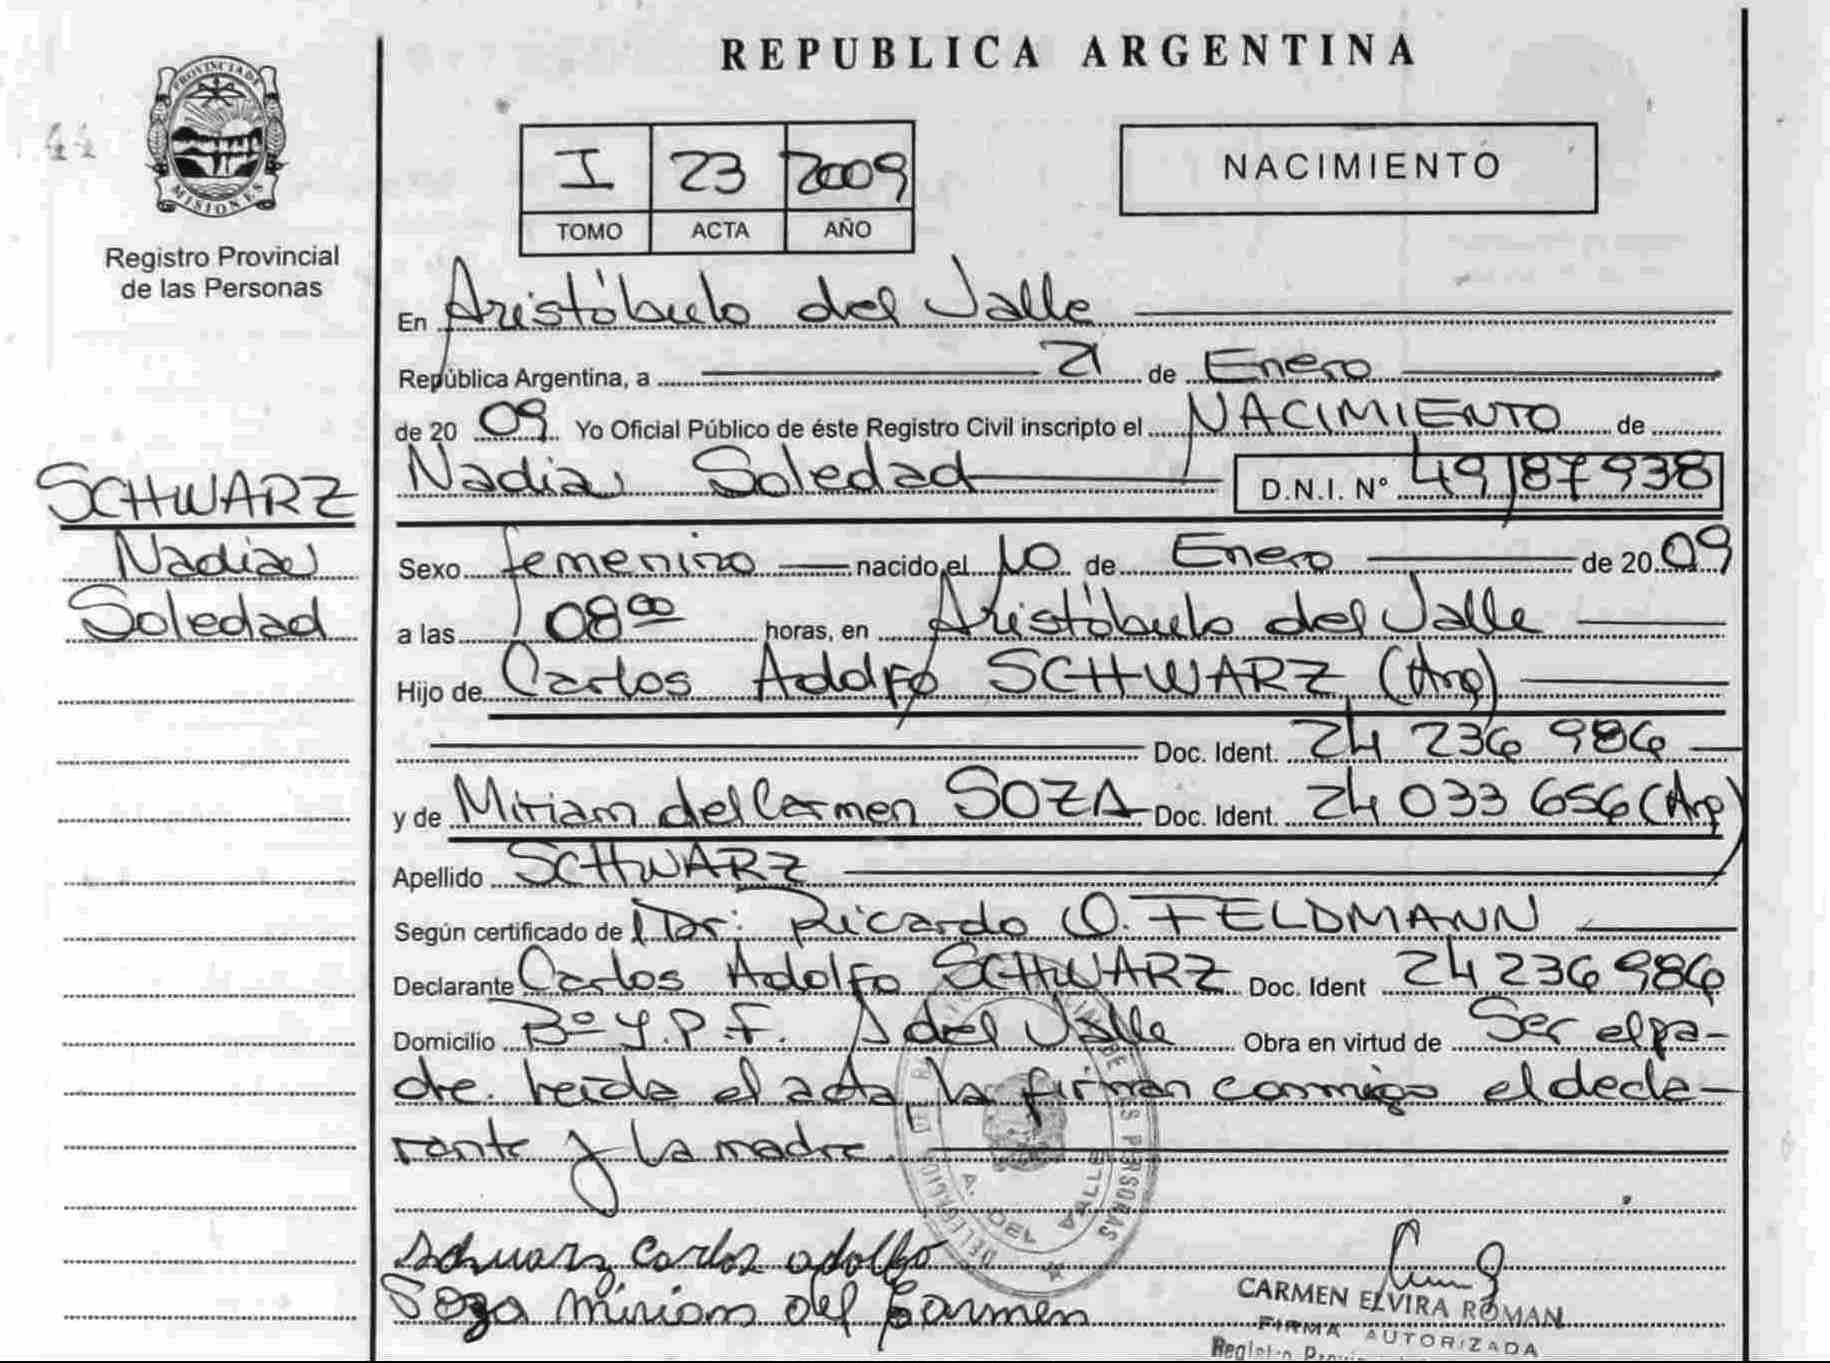 REPUBLICA ARGENTINA
PROVINCIA DE
MISIONES
Registro Provincial
de las Personas
I 23 2009
TOMO ACTA AÑO
NACIMIENTO
En Aristóbulo del Valle
República Argentina, a 21 de Enero
de 20 09 Yo Oficial Público de éste Registro Civil inscripto el NACIMIENTO de
SCHWARZ
Nadia
Soledad
Nadia Soledad D.N.I. Nº 49187938
Sexo femenino nacido el 10 de Enero de 20 09
a las 08 00 horas, en Aristóbulo del Valle
Hijo de Carlos Adolfo SCHWARZ (Arg)
Doc. Ident. 24 236 986
y de Miriam del Carmen SOZA Doc. Ident. 24 033 656 (Arg)
Apellido SCHWARZ
Según certificado de Dr: Ricardo O. FELDMANN
Declarante Carlos Adolfo SCHWARZ Doc. Ident 24 236 986
Domicilio Bº Y.P.F. A del Valle Obra en virtud de Ser el pa-
dre. Leida el acta, la firman conmigo el decla-
rante y la madre.
A. DEL VALLE
Schwarz Carlos adolfo
Soza Miriam del Carmen
CARMEN ELVIRA ROMAN
FIRMA AUTORIZADA
Registro